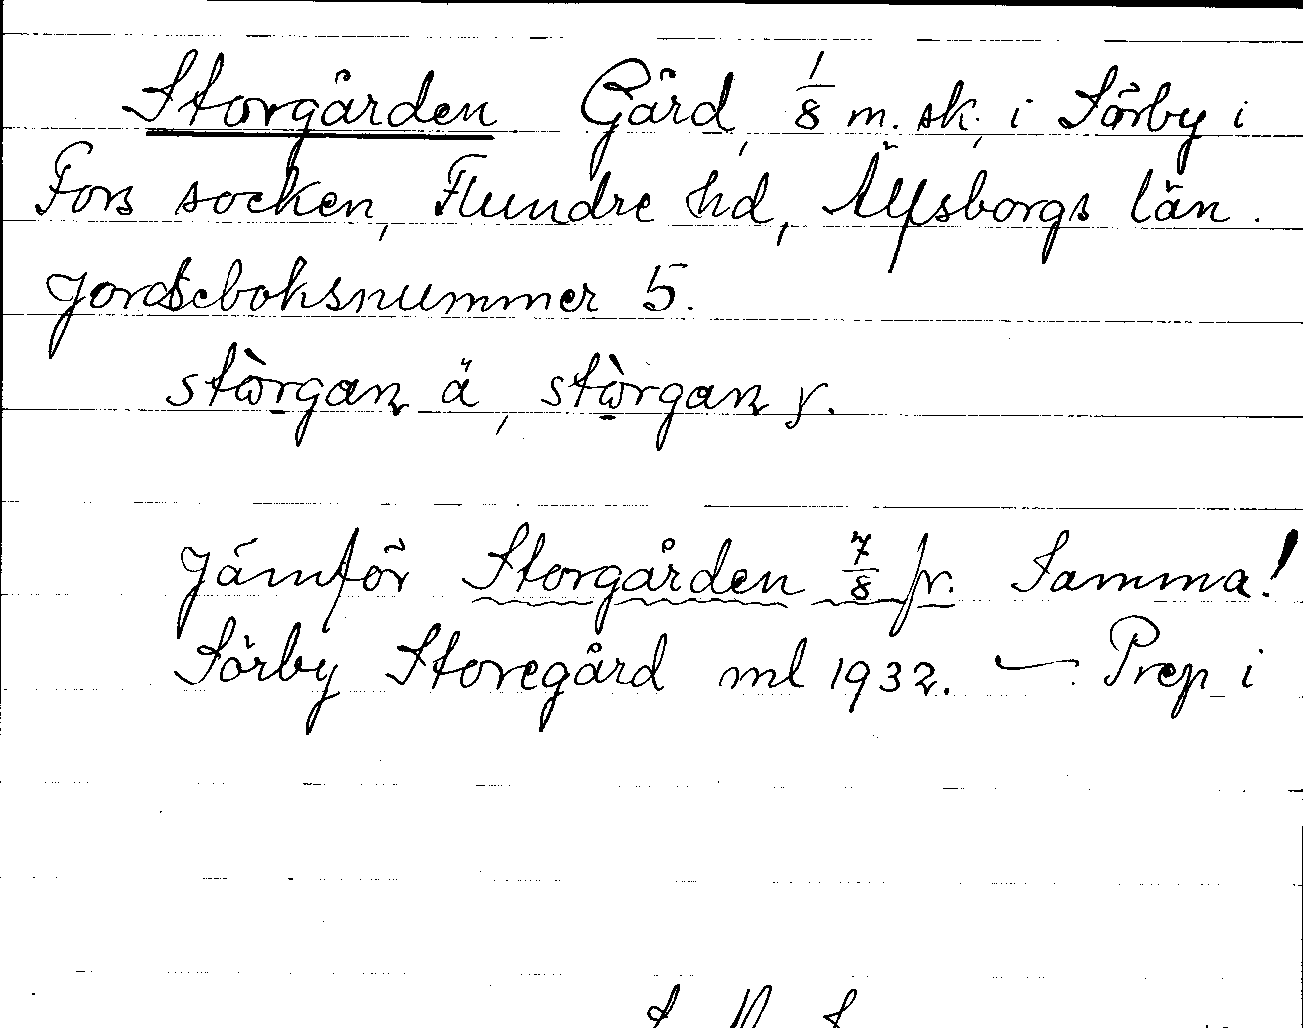 Storgården Gård, 1/8 m. sk. i Sörby i
Fors socken, Flundre hd, Älfsborgs län.
Jordeboksnummer 5.
stòrgan ä, stòrgan y.
Jämför Storgården 7/8 fr. Samma!
Sörby Storegård ml 1932. — Prep i